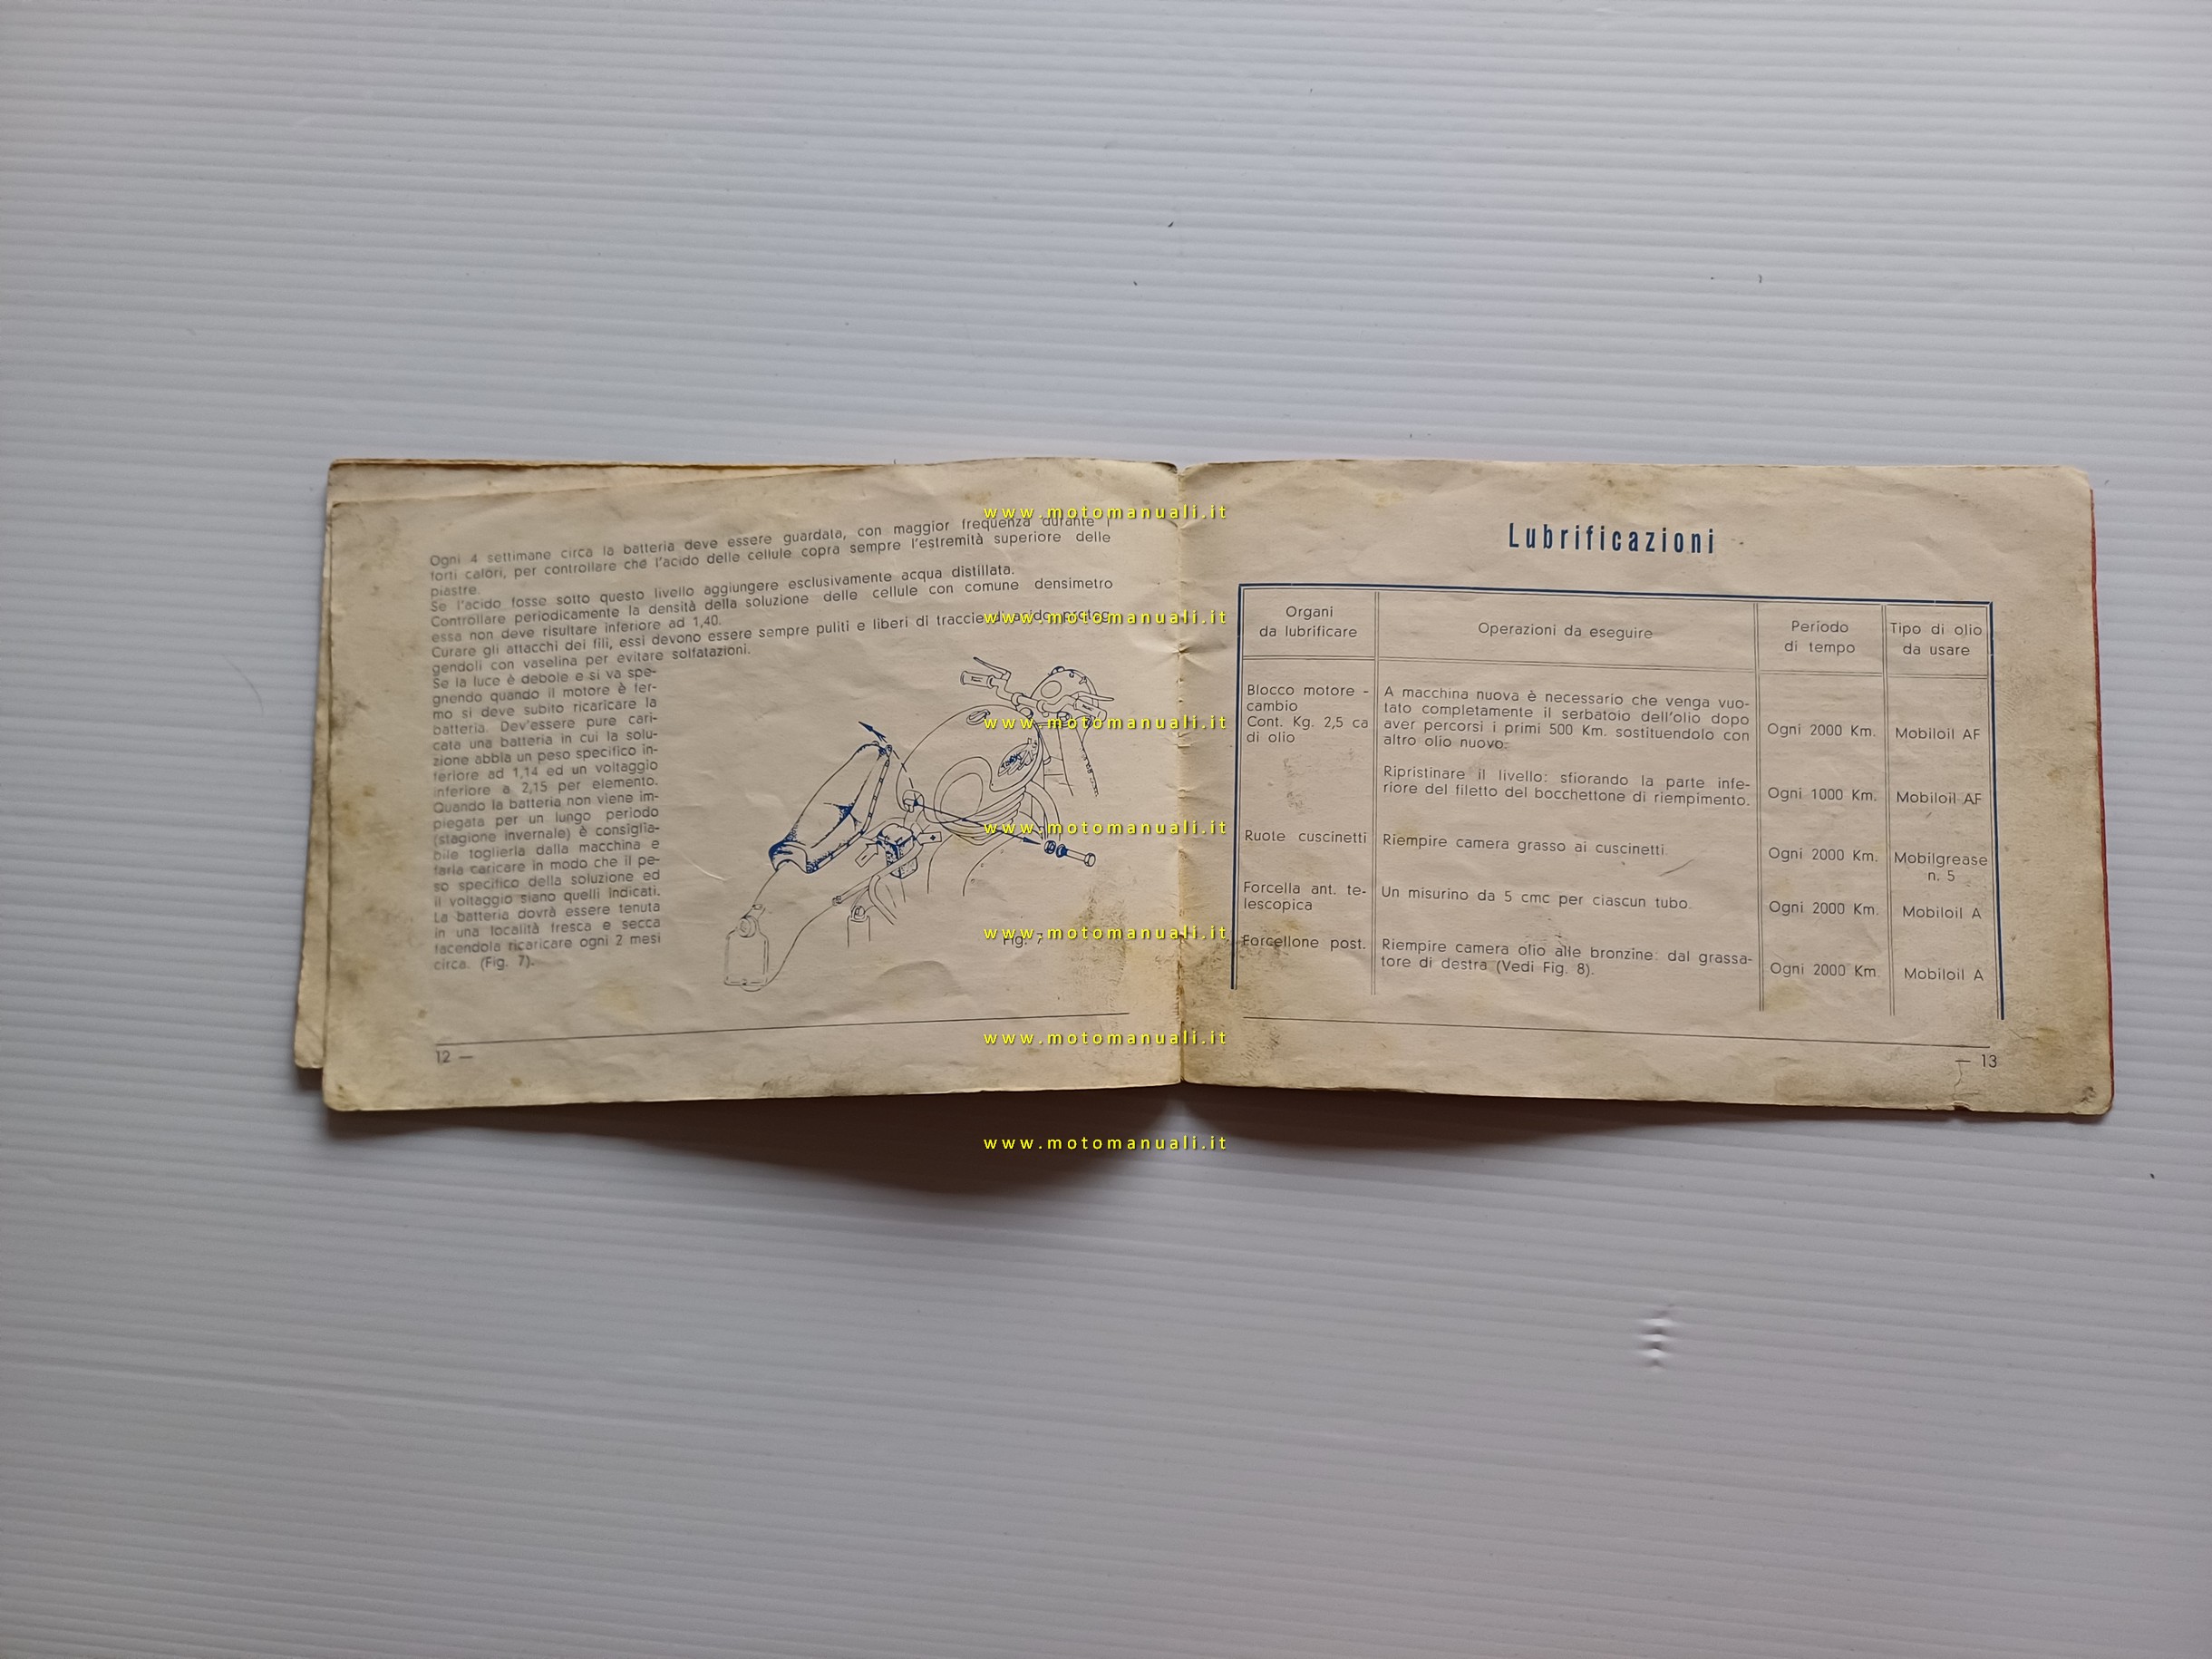 Ogni 4 settimane circa la batteria deve essere guardata, con maggior frequenza durante i
forti calori, per controllare che l'acido delle cellule copra sempre l'estremità superiore delle
piastre.
Se l'acido fosse sotto questo livello aggiungere esclusivamente acqua distillata.
Controllare periodicamente la densità della soluzione delle cellule con comune densimetro
essa non deve risultare inferiore ad 1,40.
Curare gli attacchi dei fili, essi devono essere sempre puliti e liberi di traccie di acido proteg-
gendoli con vaselina per evitare solfatazioni.
Se la luce è debole e si va spe-
gnendo quando il motore è fer-
mo si deve subito ricaricare la
batteria. Dev'essere pure cari-
cata una batteria in cui la solu-
zione abbia un peso specifico in-
feriore ad 1,14 ed un voltaggio
inferiore a 2,15 per elemento.
Quando la batteria non viene im-
piegata per un lungo periodo
(stagione invernale) è consiglia-
bile toglierla dalla macchina e
farla caricare in modo che il pe-
so specifico della soluzione ed
il voltaggio siano quelli indicati.
La batteria dovrà essere tenuta
in una località fresca e secca
facendola ricaricare ogni 2 mesi
circa. (Fig. 7).
Fig. 7
12 —
Lubrificazioni
Organi
da lubrificare
Operazioni da eseguire
Periodo
di tempo
Tipo di olio
da usare
Blocco motore -
cambio
Cont. Kg. 2,5 ca
di olio
A macchina nuova è necessario che venga vuo-
tato completamente il serbatoio dell'olio dopo
aver percorsi i primi 500 Km. sostituendolo con
altro olio nuovo.
Ogni 2000 Km.
Mobiloil AF
Ripristinare il livello: sfiorando la parte infe-
riore del filetto del bocchettone di riempimento.
Ogni 1000 Km.
Mobiloil AF
Ruote cuscinetti
Riempire camera grasso ai cuscinetti.
Ogni 2000 Km.
Mobilgrease
n. 5
Forcella ant. te-
lescopica
Un misurino da 5 cmc per ciascun tubo.
Ogni 2000 Km.
Mobiloil A
Forcellone post.
Riempire camera olio alle bronzine: dal grassa-
tore di destra (Vedi Fig. 8).
Ogni 2000 Km.
Mobiloil A
— 13
www.motomanuali.it
www.motomanuali.it
www.motomanuali.it
www.motomanuali.it
www.motomanuali.it
www.motomanuali.it
www.motomanuali.it